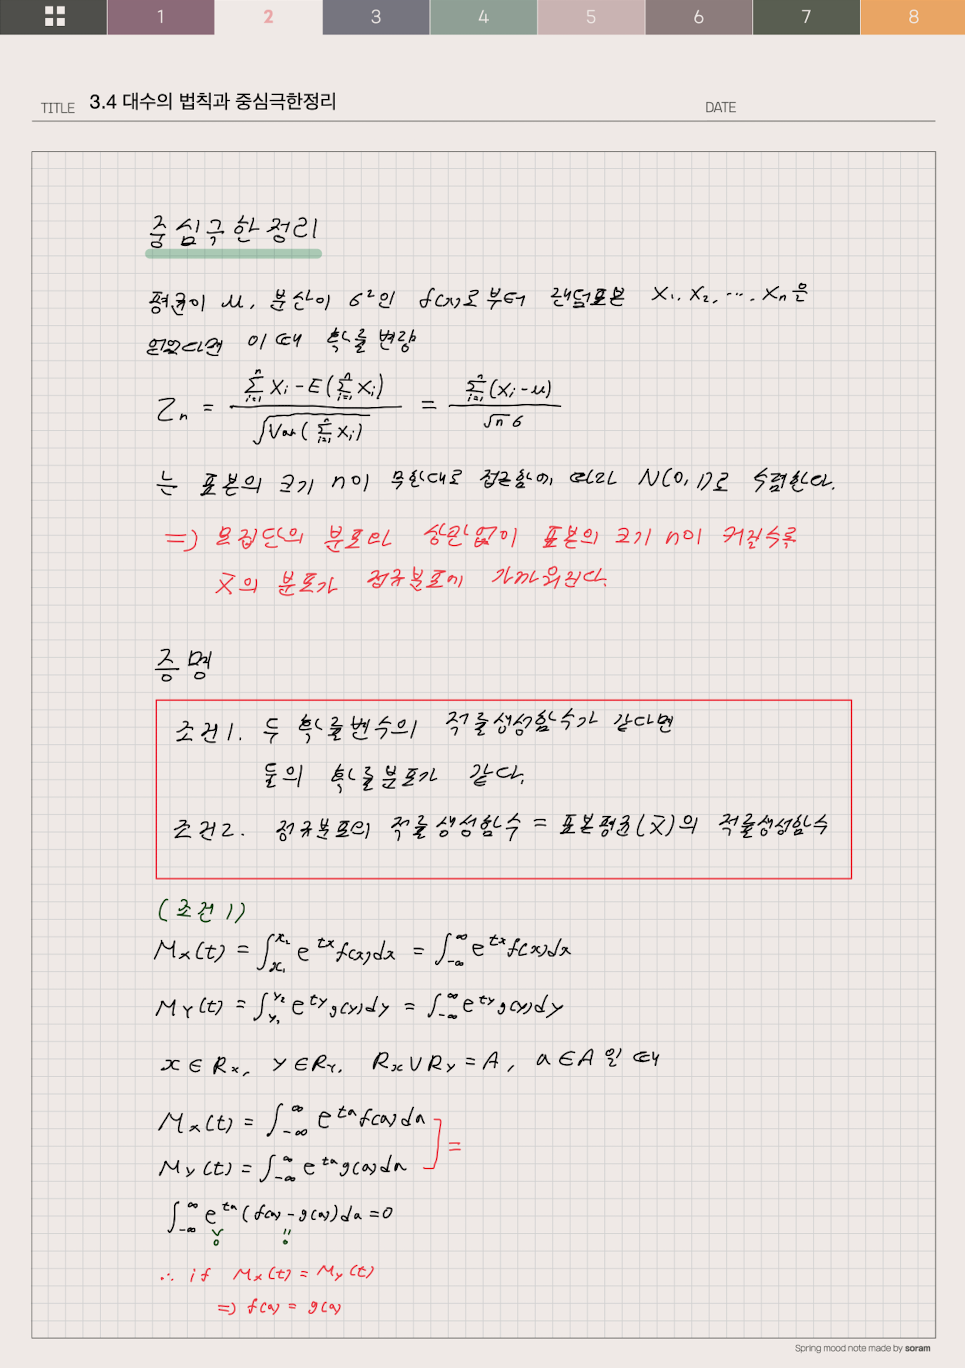 1 2 3 4 5 6 7 8
TITLE 3.4 대수의 법칙과 중심극한정리 DATE
중심극한정리
평균이 μ, 분산이 σ²인 f(x)로 부터 랜덤표본 X₁, X₂, ⋯, Xₙ을
얻었다면 이 때 확률 변량
Zₙ = (∑ᵢ₌₁ⁿ Xᵢ − E(∑ᵢ₌₁ⁿ Xᵢ)) / √(Var(∑ᵢ₌₁ⁿ Xᵢ)) = ∑ᵢ₌₁ⁿ(Xᵢ − μ) / √n σ
는 표본의 크기 n이 무한대로 접근함에 따라 N(0, 1)로 수렴한다.
=) 모집단의 분포와 상관없이 표본의 크기 n이 커질수록
X̄의 분포가 정규분포에 가까워진다.
증명
조건1. 두 확률변수의 적률생성함수가 같다면
둘의 확률분포가 같다.
조건2. 정규분포의 적률생성함수 = 표본평균(X̄)의 적률생성함수
(조건1)
Mₓ(t) = ∫_{x₁}^{x₂} e^{tx} f(x)dx = ∫_{-∞}^{∞} e^{tx} f(x)dx
M_Y(t) = ∫_{y₁}^{y₂} e^{ty} g(y)dy = ∫_{-∞}^{∞} e^{ty} g(y)dy
x ∈ Rₓ, y ∈ R_Y, Rₓ ∪ R_Y = A, a ∈ A 일 때
Mₓ(t) = ∫_{-∞}^{∞} e^{ta} f(a)da
=
M_Y(t) = ∫_{-∞}^{∞} e^{ta} g(a)da
∫_{-∞}^{∞} e^{ta} (f(a) − g(a))da = 0
∨ 0 || 0
∴ if Mₓ(t) = M_Y(t)
=) f(a) = g(a)
Spring mood note made by soram